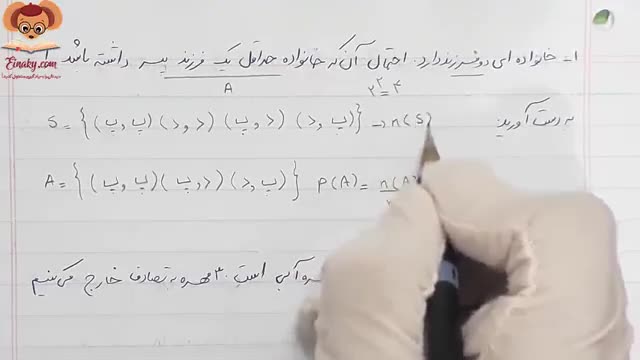 Einaky.com
۱- خانواده ای دو فرزند دارد. احتمال آن که خانواده حداقل یک فرزند پسر داشته باشد
A
۲^۲ = ۴
به دست آورید
S = { (پ,پ) (د,د) (پ,د) (د,پ) } → n(S)
A = { (پ,پ) (پ,د) (د,پ) } P(A) = n(A)
آبی است. ۳ مهره به تصادف خارج می‌کنیم